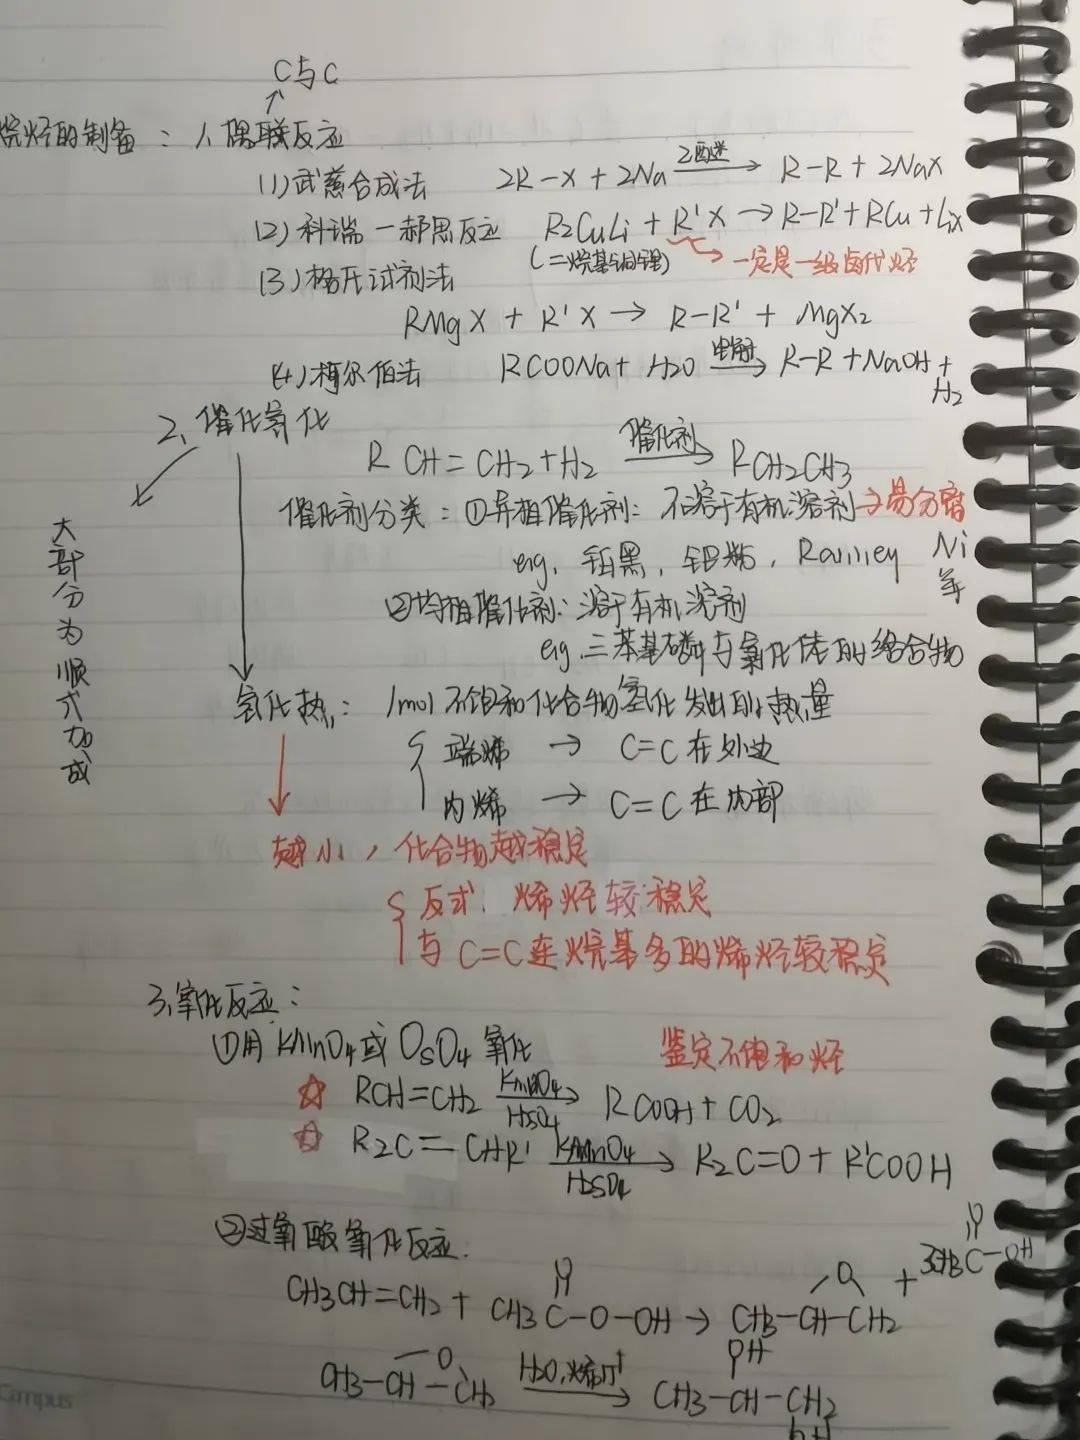 C与C
烷烃的制备：1、偶联反应
(1)武慈合成法 2R-X + 2Na 乙醚→ R-R + 2NaX
(2)科瑞一郝思反应 R2CuLi + R'X → R-R' + RCu + LiX
(二烷基铜锂) → 一定是一级卤代烃
(3)格氏试剂法
RMgX + R'X → R-R' + MgX2
(4)柯尔伯法 RCOONa + H2O 电解→ R-R + NaOH + H2
2、催化氢化
RCH=CH2+H2 催化剂→ RCH2CH3
催化剂分类：①异相催化剂：不溶于有机溶剂→易分离
eg. 铂黑，钯粉，Ranney Ni等
②均相催化剂：溶于有机溶剂
eg.三苯基磷与氯化铑的络合物
大部分为顺式加成
氢化热：1mol不饱和化合物氢化发出的热量
端烯 → C=C在外边
内烯 → C=C在内部
越小，化合物越稳定
反式．烯烃较稳定
与C=C连烷基多的烯烃较稳定
3、氧化反应：
①用KMnO4或OsO4氧化 鉴定不饱和烃
☆ RCH=CH2 KMnO4 H2SO4→ RCOOH + CO2
☆ R2C=CHR' KMnO4 H2SO4→ R2C=O + R'COOH
②过氧酸氧化反应.
CH3CH=CH2 + CH3C(=O)-O-OH → CH3-CH-CH2 (O) + CH3C(=O)-OH
CH3-CH-CH2 (O) H2O,稀H+→ CH3-CH(OH)-CH2(OH)
Campus